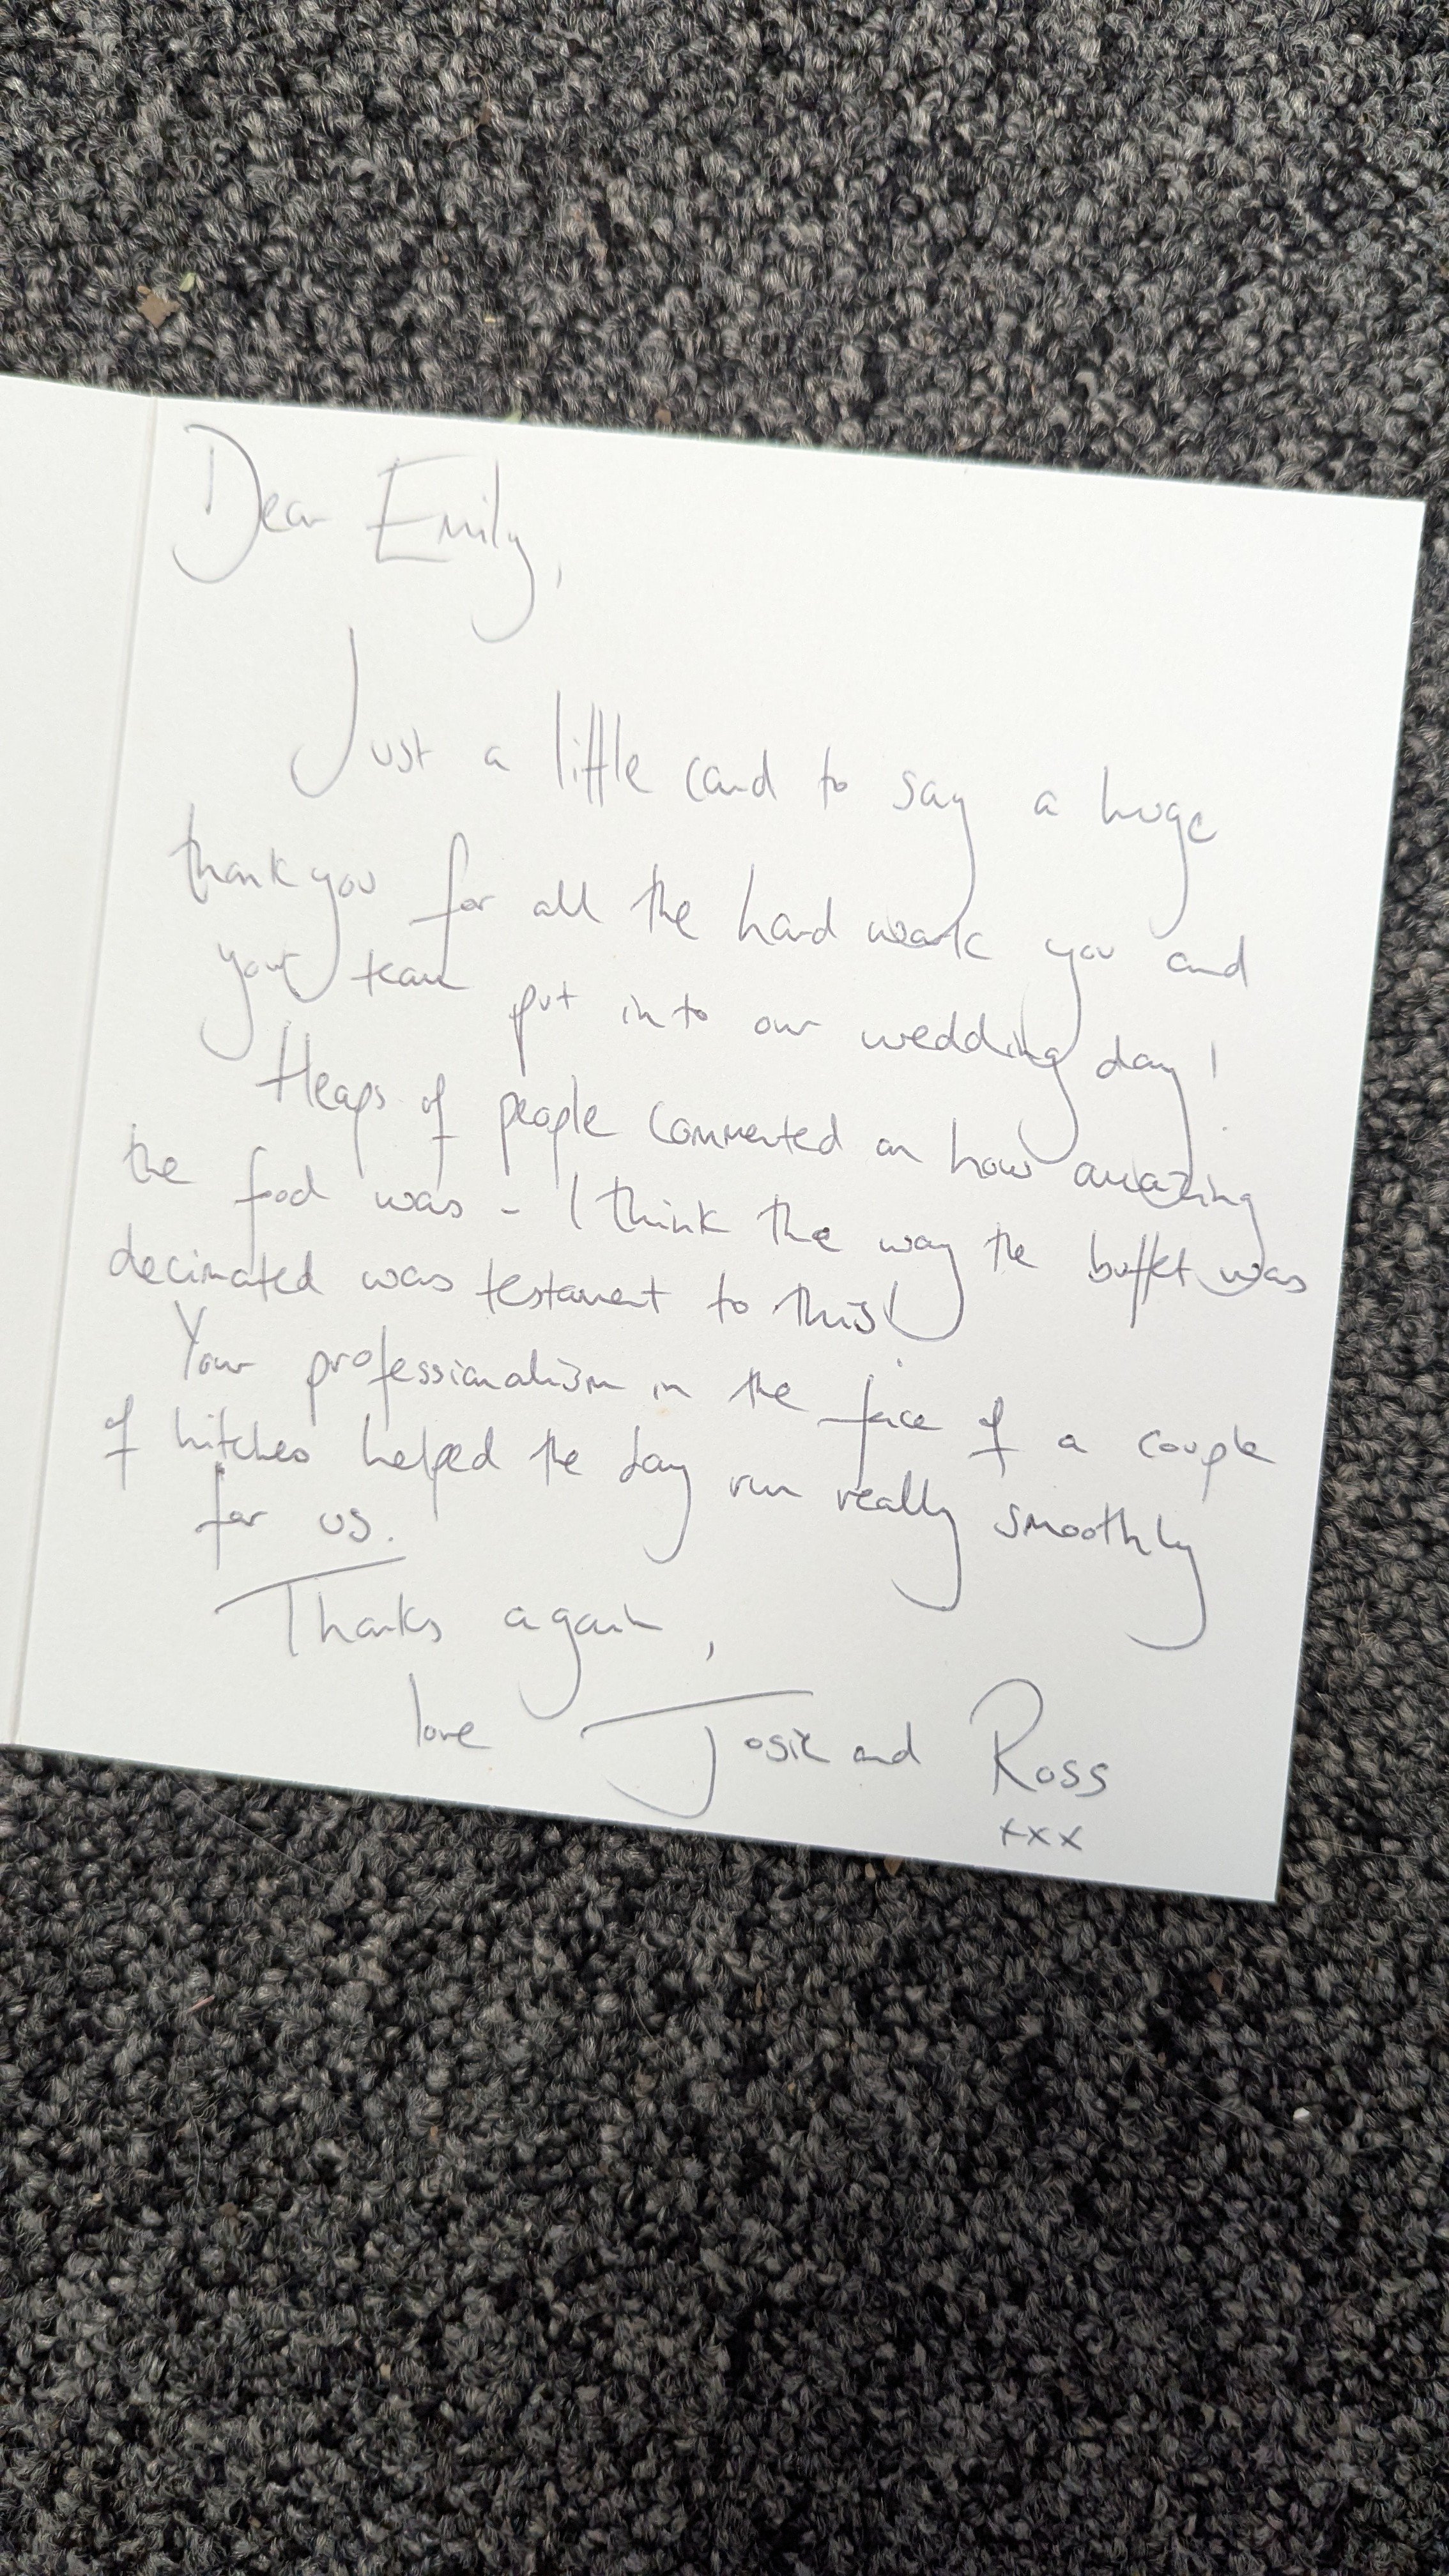 Dear Emily,
Just a little card to say a huge
thank you for all the hard work you and
your team put into our wedding day!
Heaps of people commented on how amazing
the food was - I think the way the buffet was
decimated was testament to this!
Your professionalism in the face of a couple
of hitches helped the day run really smoothly
for us.
Thanks again,
love Josie and Ross
xxx